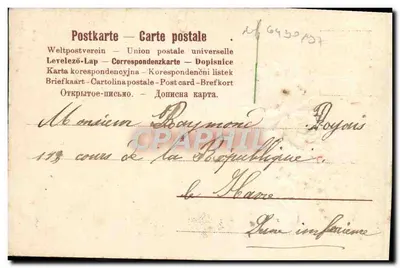 Postkarte — Carte postale
Weltpostverein — Union postale universelle
Levelező-Lap — Correspondenzkarte — Dopisnice
Karta korespondencyjna — Korespondenční lístek
Briefkaart — Cartolina postale — Post card — Brefkort
Открытое письмо. — Дописна карта.
Monsieur Raymond
cours de la République
le Havre
Seine inférieure
CPARAMA